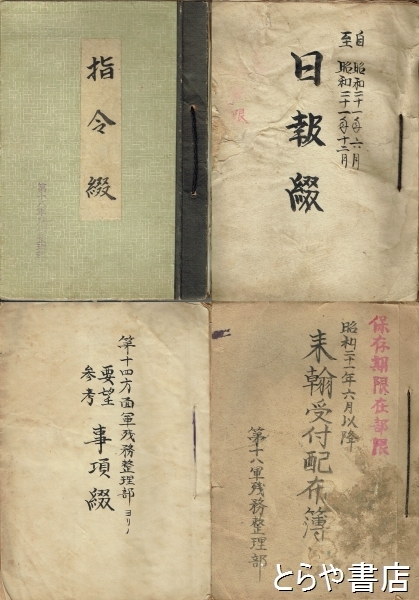 指令綴
自 昭和二十一年六月
至 昭和二十一年十二月
日報綴
第十四方面軍残務整理部ヨリノ
要望
参考
事項綴
保存期限在部限
昭和二十一年六月以降
来翰受付配布簿
第十八軍残務整理部
とらや書店